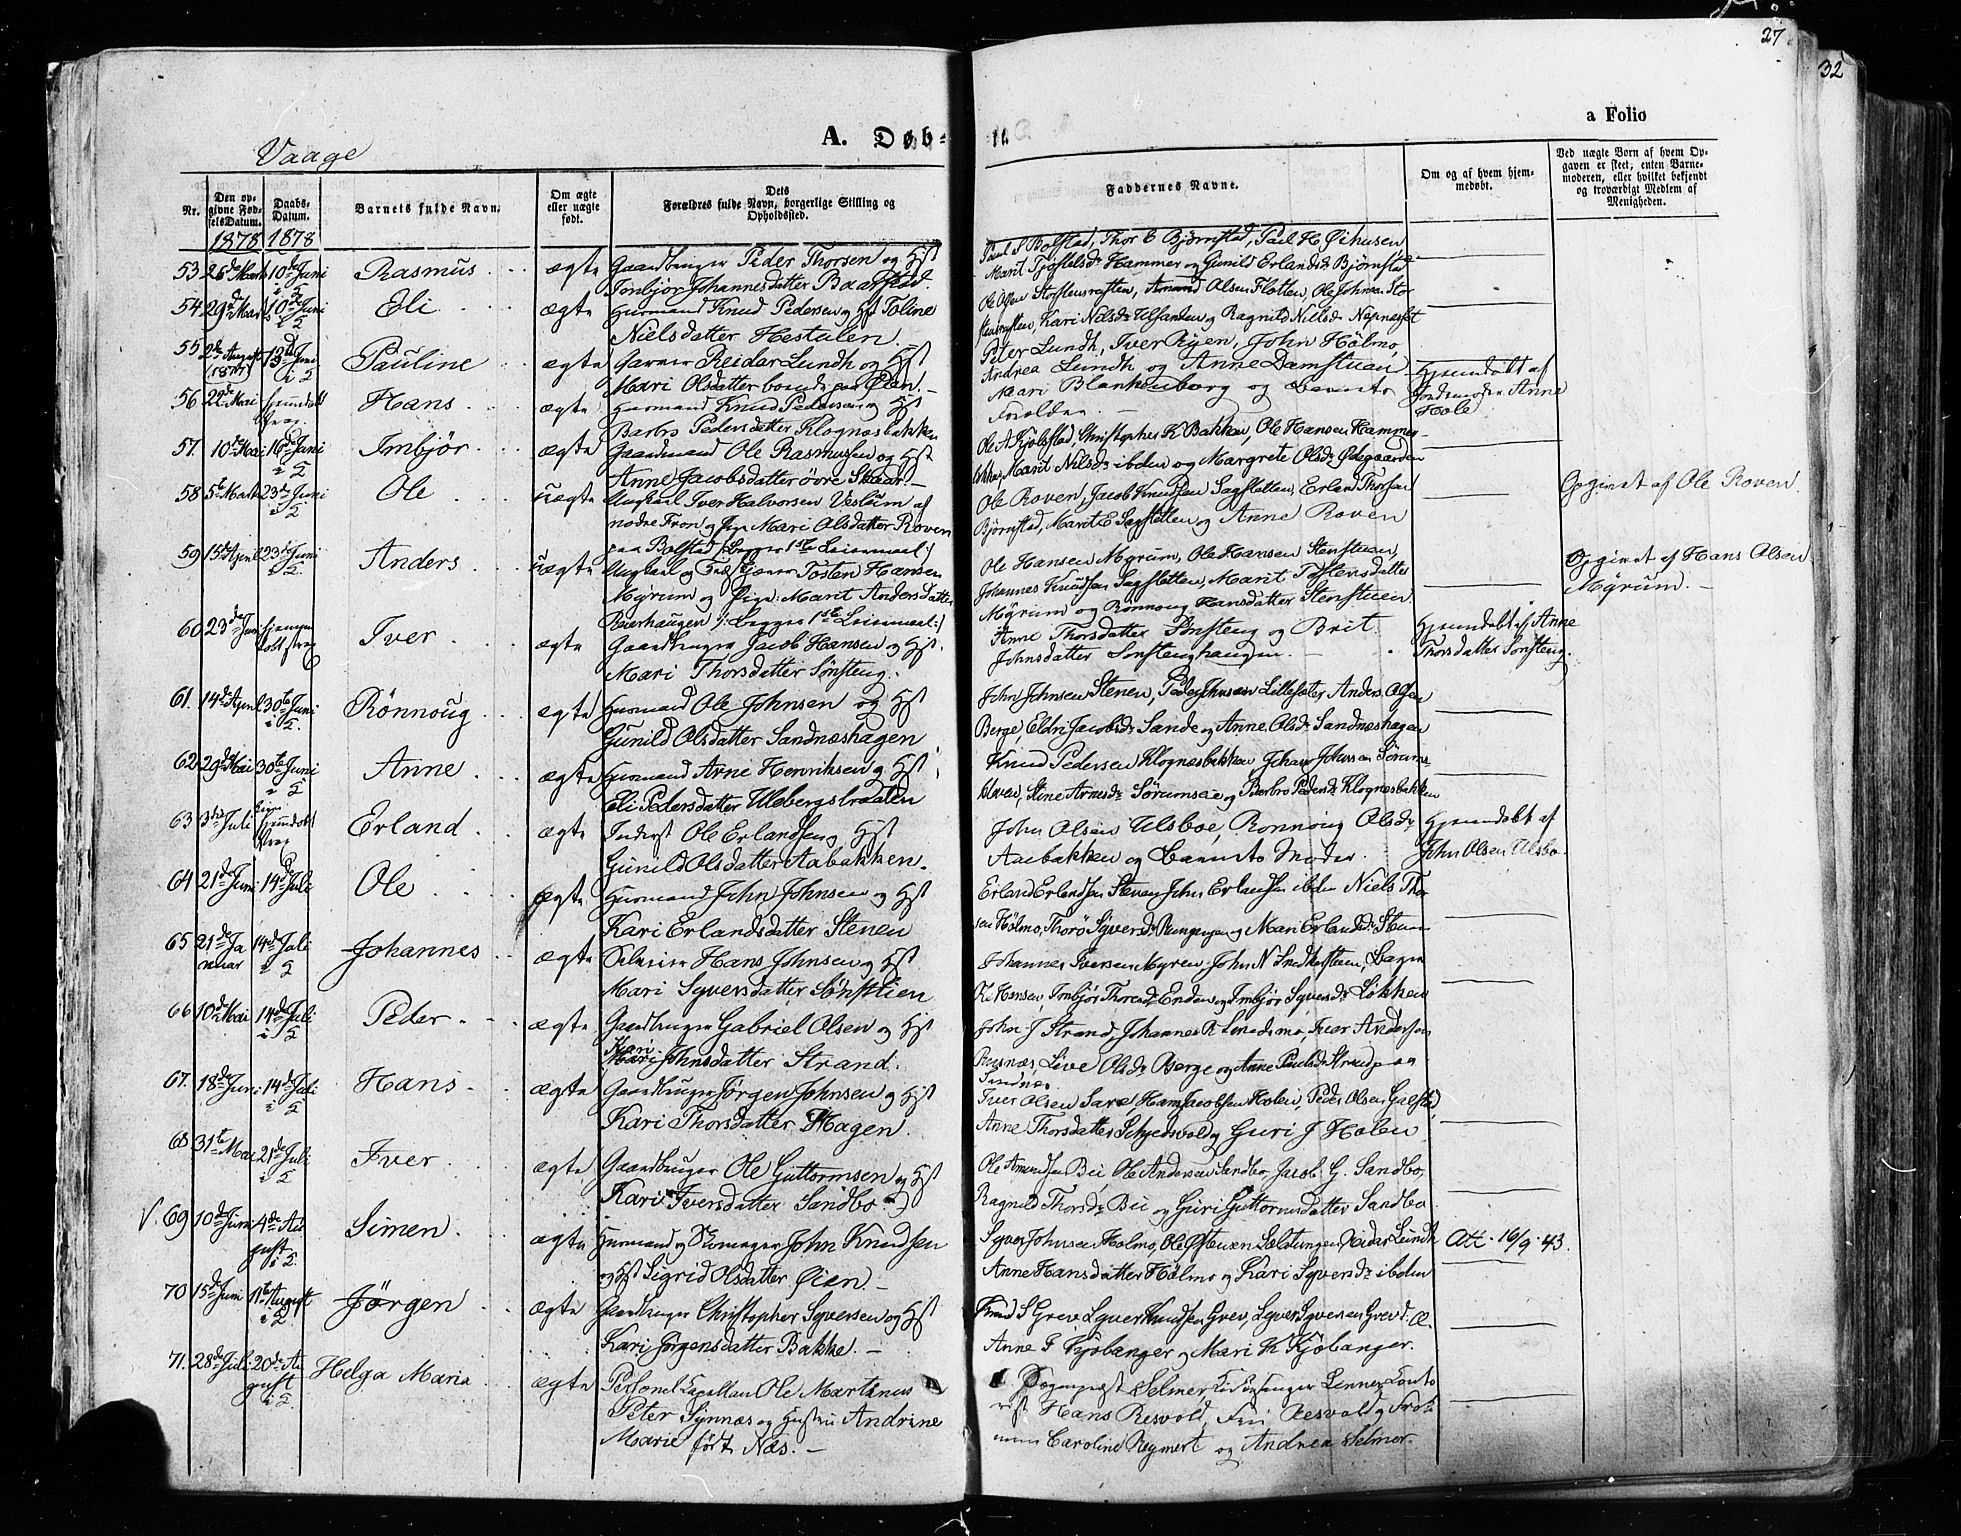 27
32
A. Døb-
a Folio
Vaage
Nr.
Den op-
givne Fød-
sels Datum.
1878
Daabs-
Datum.
1878
Barnets fulde Navn.
Om ægte
eller uægte
født.
Dets
Forældres fulde Navn, borgerlige Stilling og
Opholdssted.
Faddernes Navne.
Om og af hvem hjem-
medøbt.
Ved uægte Born af hvem Op-
gaven er skeet, enten Barne-
moderen, eller hvilket bekjendt
og troværdigt Medlem af
Menigheden.
53 26de Marts 10de Juni Rasmus ægte Gaardbruger Peder Thorsen og Hst
Tonbjor Johannesdatter Baarstad.
Paul S Bolstad, Thor E Bjørnstad, Paul H Øihusen
Marit Tjøstelsdr Hammer og Gunild Erlandsdr Bjørnstad
54 29de Marts 10de Juni Eli ægte Husmand Knud Pedersen og Hst Toline
Nielsdatter Hestulen.
Ole Olsen Amund Olsen Flotten, Ole Johnsen Stor
Kari Nilsdr Ulsanden og Ragnild Nielsdr
55 2de August (1877) 13de Juni Pauline ægte Garver Reidar Lundh og Hst
Mari Olsdatter boende paa Øien.
Peter Lundh, Iver Ryen, John Hölmo,
Andrea Lundh og Anne Damstuen
56 22de Mai Hans ægte Husmand Knud Pedersen og Hst
Barbro Pedersdatter Klognæsbakken
Mari Blankenborg og Barnets
Forældre.
Hjemdøbt af
Jordemoder Anne
Hole
57. 10de Mai 16de Juni Imbjør ægte Gaardmand Ole Rasmussen og Hst
Anne Jacobsdatter övre Skaar
Ole A Kjølstad, Christopher K Bakken, Ole Hansen Hammer-
bakken, Marit Nilsdr ibden og Margrete Olsdr Ødegaarden
58 5te Marts 23de Juni Ole uægte Ungkarl Iver Halvorsen Veslum af
nodre Fron og Pige Mari Olsdatter Roven
paa Bolstad /: Begges 1ste Leiermaal :/
Ole Roven, Jacob Knudsen Sagflotten, Erland Thorsen
Bjørnstad, Marit E Sagflotten og Anne Roven
Opgivet af Ole Roven.
59 15de April 23de Juni Anders uægte Ungkarl og Tosten Hansen
Myrum og Pige Marit Andersdatter
/: Begges 1ste Leiermaal :/
Ole Hansen Myrum, Ole Hansen Stenstuen,
Johannes Knudsen Sagflotten, Marit Tostensdatter
Myrum og Rønnoug Hansdatter Stenstuen.
Opgivet af Hans Olsen
Myrum.
60 23de Juni Iver ægte Gaardbruger Jacob Hansen og Hst.
Mari Thorsdatter Sønsteng.
Anne Thorsdatter Sønsteng og Brit
Johnsdatter Sønstenghaugen.
Hjemdøbt af Anne
Thorsdatter Sønsteng.
61. 14de April 30te Juni Rönnoug ægte Husmand Ole Johnsen og Hst
Gunild Olsdatter Sandnæshagen
John Johnsen Stenen, Peder Johnsen Lillesæter Anders Olsen
Berge, Eldri Jacobsdr Sande og Anne Olsdr Sandnæshagen
62 29de Mai 30te Juni Anne ægte Husmand Arne Henriksen og Hst
Eli Pedersdatter Ulebergsbraaten
Knud Pedersen Klognæsbakken Johan Johnsen Sörum-
Stine Arnesdr Sörumseie og Barbro Pedersdr Klognæsbakken
63 3die Juli Erland ægte Inderst Ole Erlandsen og Hst
Gunild Olsdatter Aabakken.
John Olsen Ulsboe, Rønnoug Olsdr
Aabakken og Barnets Moder.
Hjemdøbt af
John Olsen Ulsbo
64 21de Juni 14de Juli Ole ægte Husmand John Johnsen og Hst
Kari Erlandsdatter Stenen
Erland Erlandsen Stenen John Erlandsen ibden Niels Thor
sen Hölmo, Thorö Syversdr og Mari Erlandsdr Stenen
65 21de Ja
nuar 14de Juli Johannes ægte Hans Johnsen og Hst
Mari Syversdatter Sönstlien
Johannes Iversen Myren, John N
Hansen, Imbjør Thoresdr Enden og Imbjør Syversdr Løkken
66 10de Mai 14de Juli Peder ægte Gaardbruger Gabriel Olsen og Hst
Kari Johnsdatter Strand.
John J Strand, Johannes R Iver Andersen
Live Olsdr Berge og Anne Paulsdr Strand paa
Sandnæs
67. 18de Juni 14de Juli Hans ægte Gaardbruger Jørgen Johnsen og Hst
Kari Thorsdatter Hagen.
Iver Olsen Hans Jacobsen Holen, Peder Olsen
Anne Thorsdatter og Guri J Holen
68 31te Mai 21de Juli Iver ægte Gaardbruger Ole Guttormsen og Hst
Kari Iversdatter Sandbo
Ole Amundsen Bei, Ole Andersen Sandbo, Jacob G. Sandbo,
Ragnild Thorsdr Bei og Guri Guttormsdatter Sandbo
V. 69 10de Juni 4de Au
gust Simen ægte Husmand og Skomager John Knudsen
og Hst Sigrid Olsdatter Øien.
Syver Johnsen Holmo, Ole Østensen Reidar Lundh
Anne Hansdatter Hölmo og Kari Syversdr ibden
Att. 16/9-43.
70 15de Juni 11te August Jørgen ægte Gaardbruger Christopher Syversen og Hst
Kari Jørgensdatter Bakke.
Knud S Grev Syver Knudsen Grev, Syver Syversen Grev
Anne J Kjøbanger og Mari K Kjøbanger.
71. 28de Juli 20de Au
gust Helga Maria ægte Personel Kapellan Ole Martinus
Peter Synnæs og Hustru Andrine
Marie født Næs.
Sognepræst Selmer,
Hans Resvold, Fru Resvold og Frøk
Caroline Reymert og Andrea Selmer.